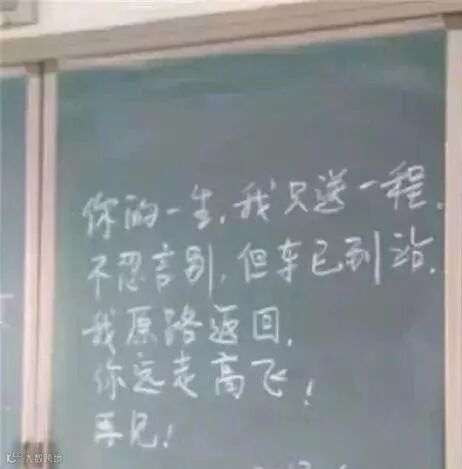 你的一生,我只送一程.
不忍言别,但车已到站.
我原路返回,
你远走高飞!
再见!
大数跨境